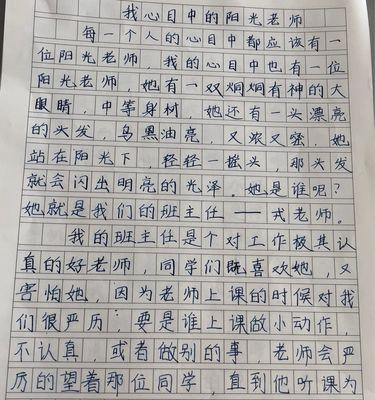 我心目中的阳光老师
每一个人的心目中都应该有一
位阳光老师，我的心目中也有一位
阳光老师，她有一双炯炯有神的大
眼睛，中等身材，她还有一头漂亮
的头发，乌黑油亮，又浓又密，她
站在阳光下，轻轻一摇头，那头发
就会闪出明亮的光泽。她是谁呢？
她就是我们的班主任——戎老师。
我的班主任是个对工作极其认
真的好老师，同学们既喜欢她，又
害怕她，因为老师上课的时候对我
们很严厉：要是谁上课做小动作，
不认真，或者做别的事，老师会严
厉的望着那位同学，直到他听课为